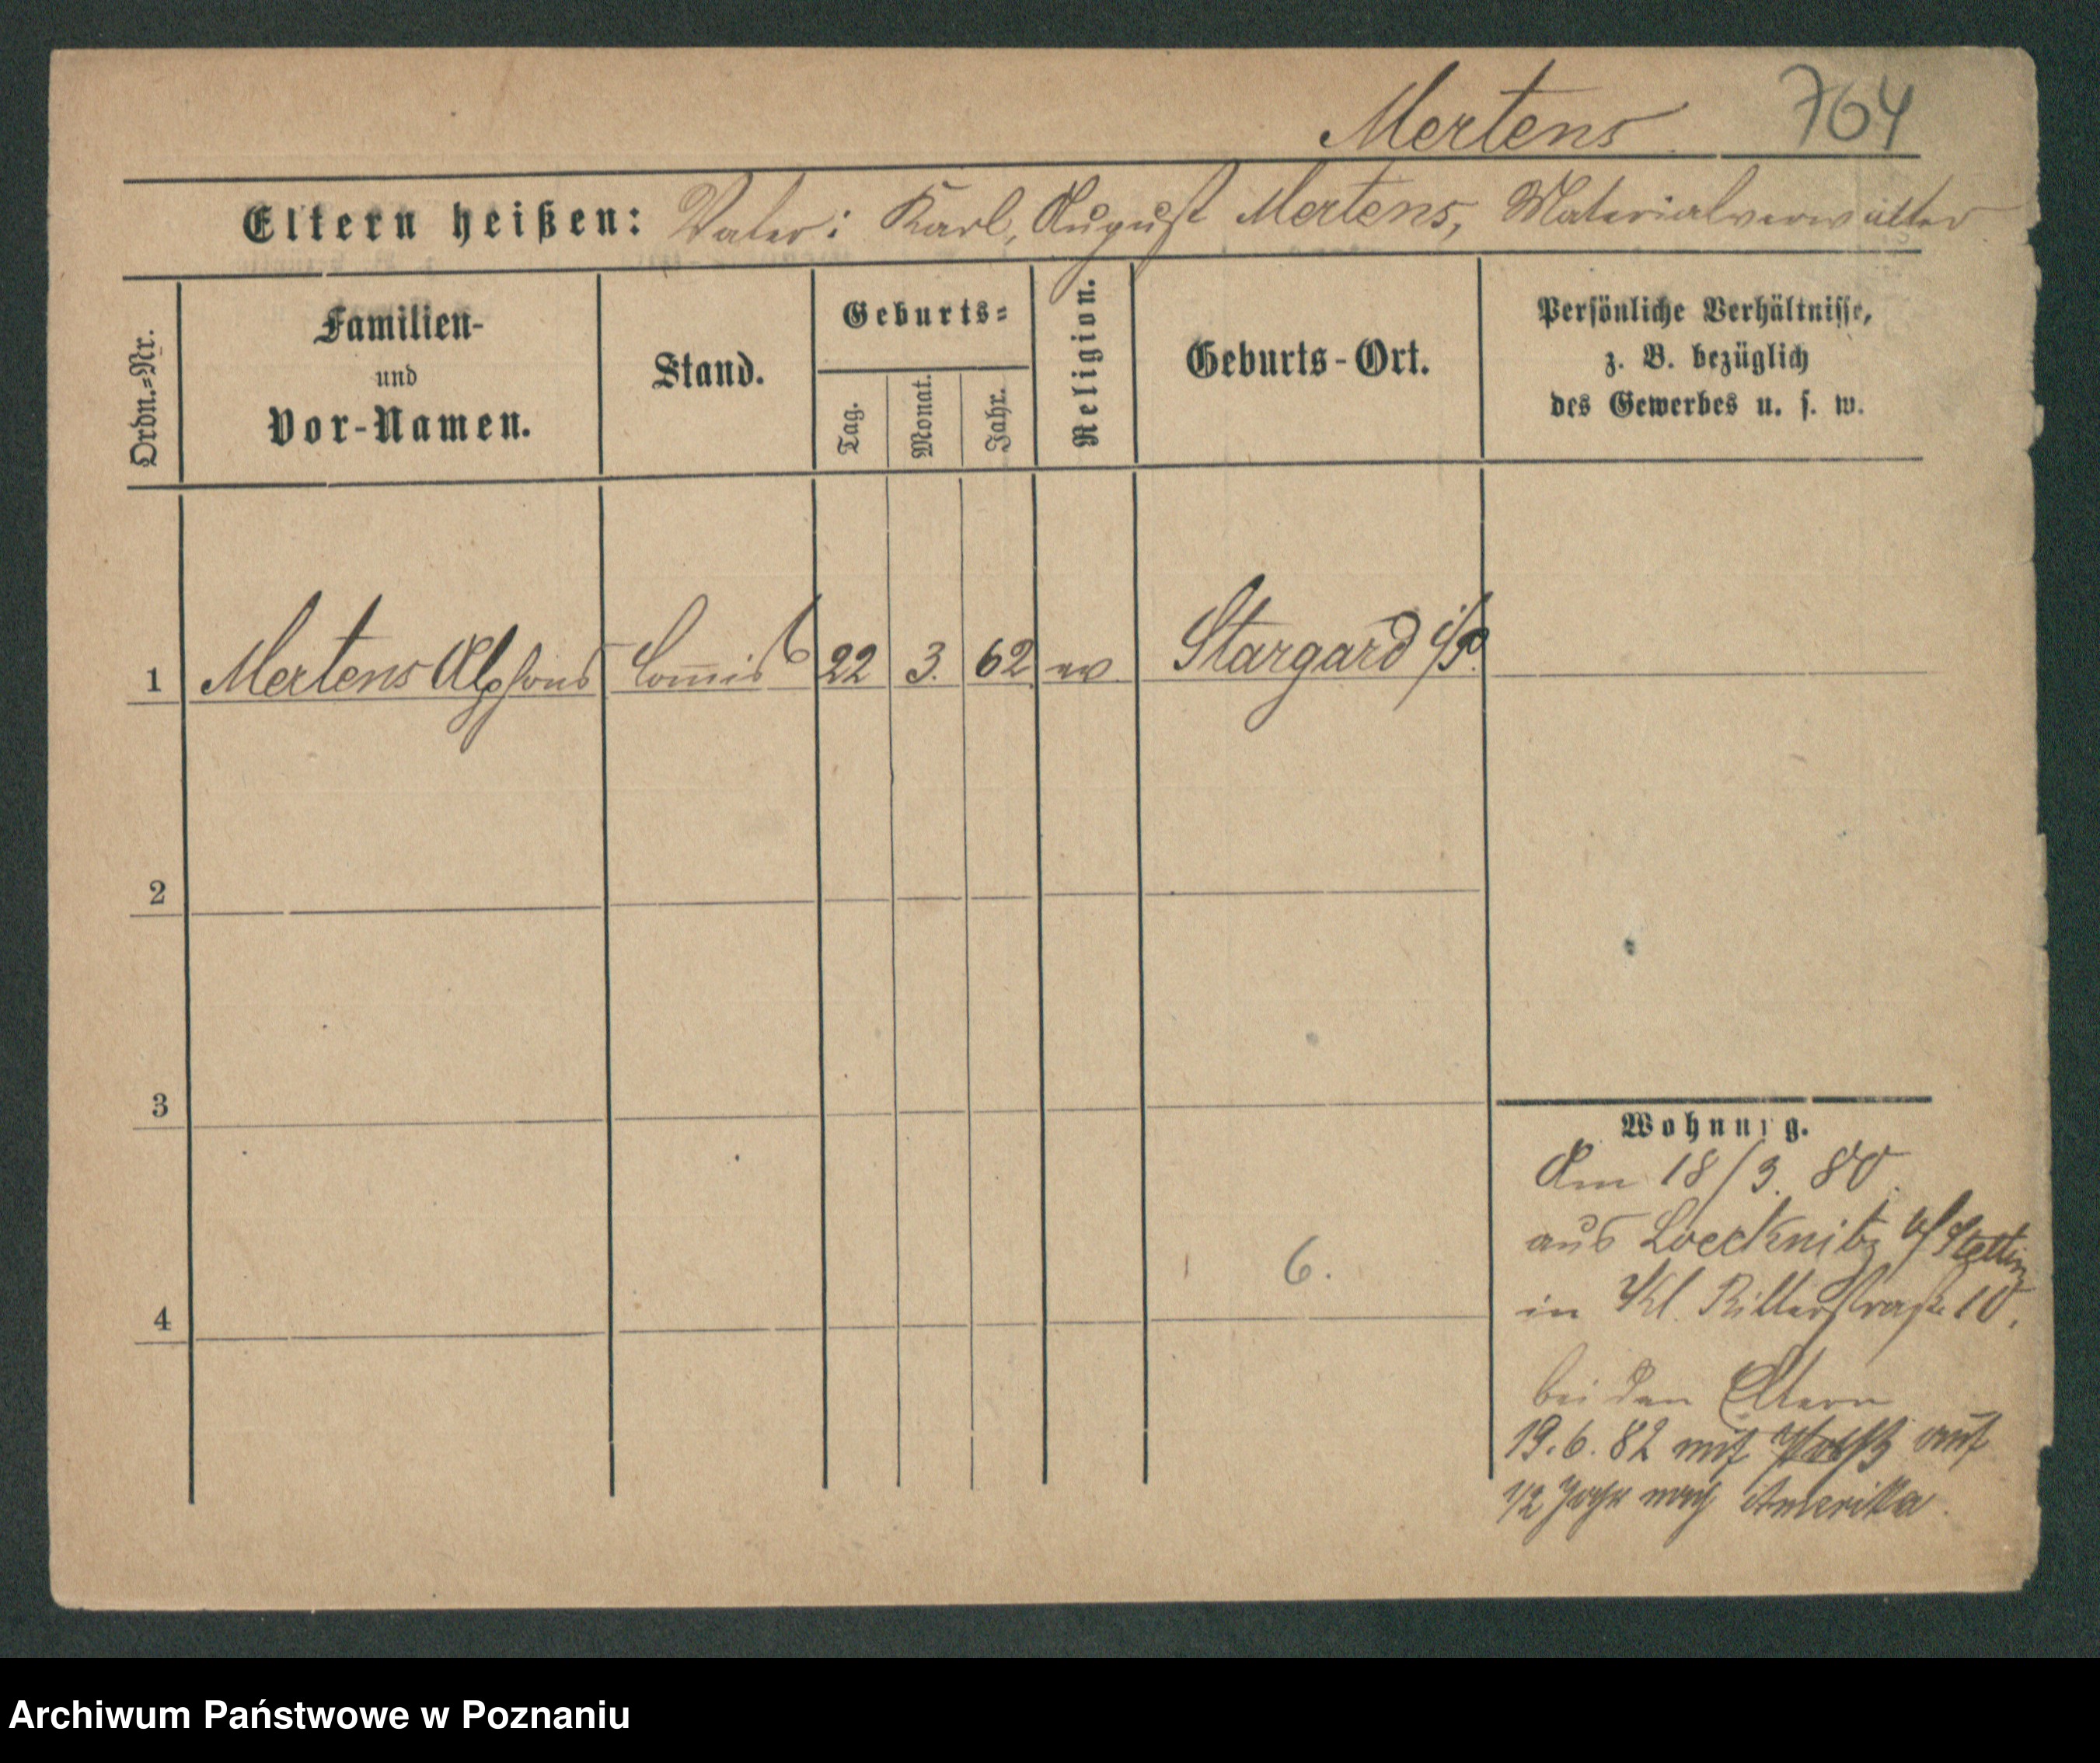 Mertens 764
Eltern heißen: Vater: Karl, August Mertens, Materialverwalter
Ordn.=Nr.
Familien-
und
Vor-Namen.
Stand.
Geburts=
Tag.
Monat.
Jahr.
Religion.
Geburts-Ort.
Persönliche Verhältnisse,
z. B. bezüglich
des Gewerbes u. s. w.
1 Mertens Alphons Com̄is 22 3. 62 ev. Stargard i/P.
2
3
Wohnung.
Am 18/3. 80
aus Loecknitz b/ Stettin
in Kl. Ritterstraße 10.
6.
4
bei den Eltern
19.6.82 mit auf
1/2 Jahr nach Amerika.
Archiwum Państwowe w Poznaniu